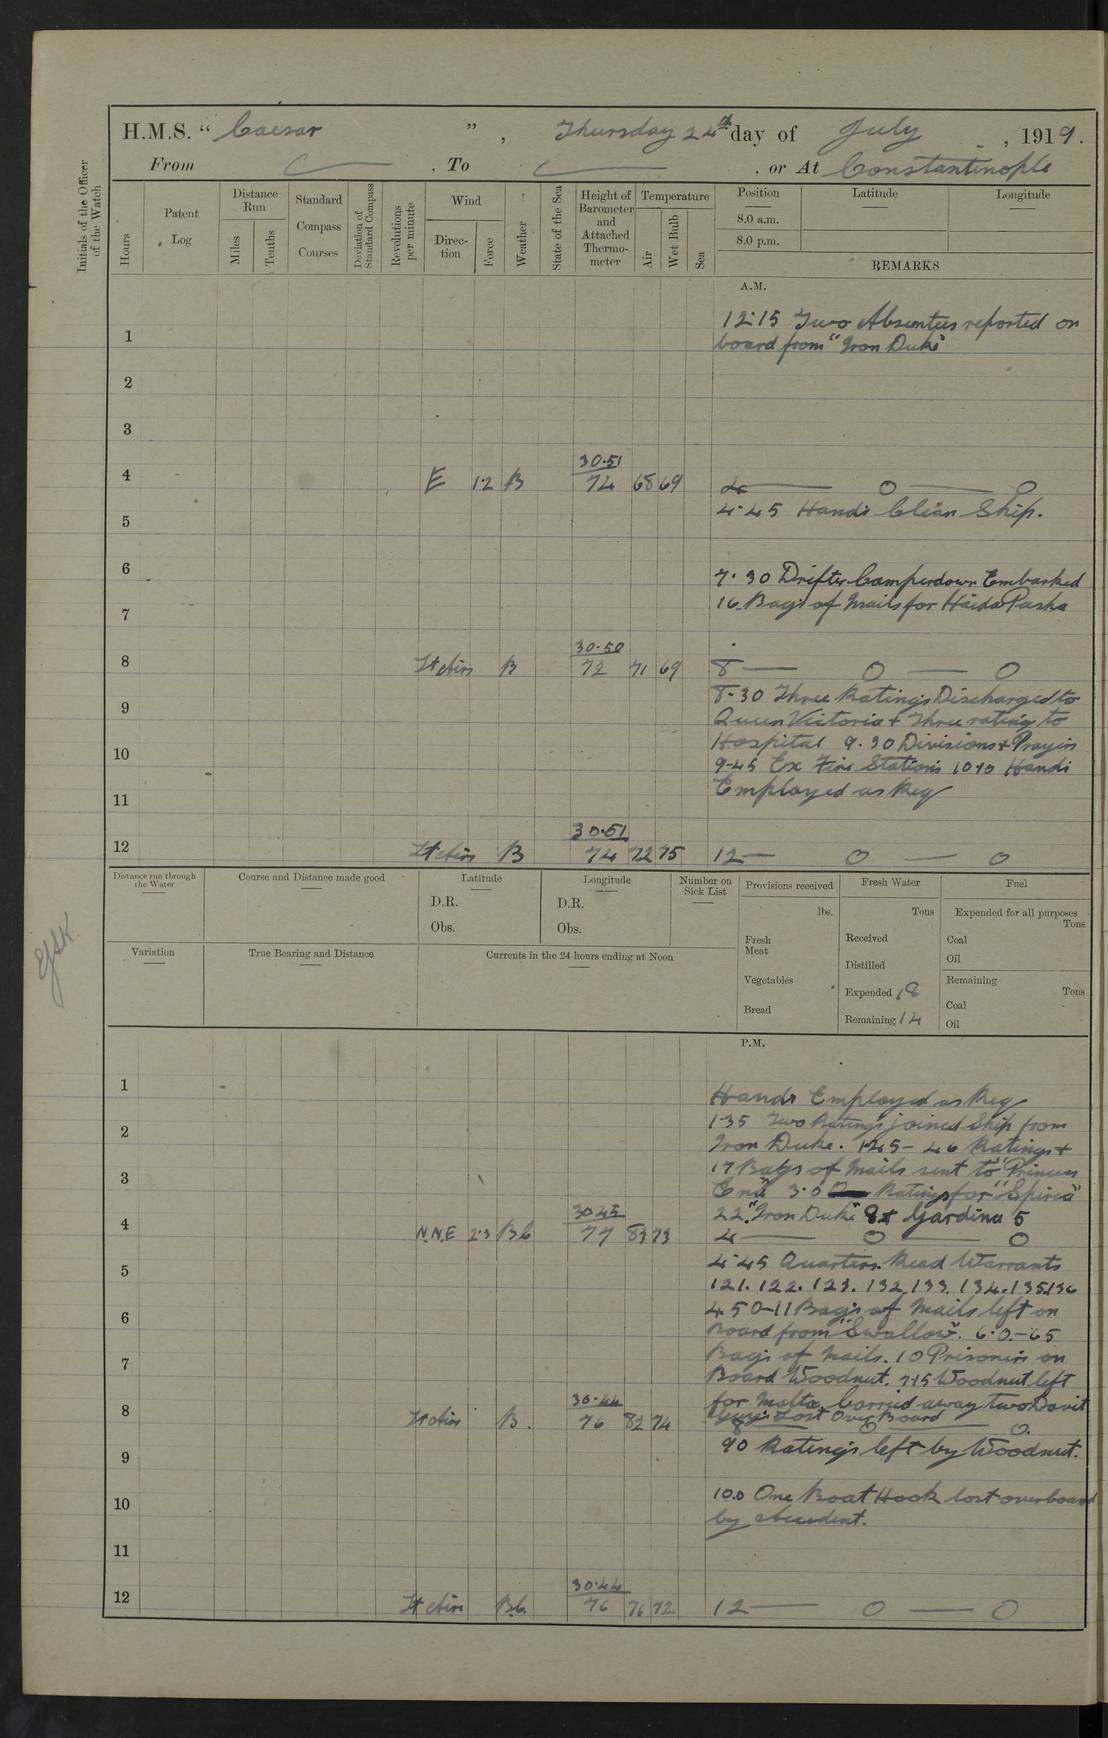 H.M.S. “ Caesar ” , Thursday 24th day of July , 1919.
From , To , or At Constantinople
Initials of the Officer of the Watch
Hours
Patent Log
Distance Run
Miles
Tenths
Standard Compass Courses
Deviation of Standard Compass
Revolutions per minute
Wind
Direc- tion
Force
Weather
State of the Sea
Height of Barometer and Attached Thermo- meter
Temperature
Air
Wet Bulb
Sea
Position Latitude Longitude
8.0 a.m.
8.0 p.m.
REMARKS
A.M.
12.15 Two Absentees reported on
1 board from "Iron Duke"
2
3
30.51
4 E 1.2 B 74 68 69 4 — 0 — 0
5 4.45 Hands Clean Ship.
6 7.30 Drifter Camperdown Embarked
16 Bags of Mails for Haida Pasha
7
30.50
8 Lt airs B 72 71 69 8 — 0 — 0
8.30 Three Ratings Discharged to
9 Queen Victoria + Three rating to
Hospital 9.30 Divisions + Prayers
10 9-45 Ex Fire Stations 10.10 Hands
11 Employed as Req
30.51
12 Lt airs B 74 72 75 12 — 0 — 0
Distance run through the Water
Course and Distance made good
Latitude
D.R.
Obs.
Longitude
D.R.
Obs.
Number on Sick List
Provisions received
lbs.
Fresh Meat
Vegetables
Bread
Fresh Water
Tons
Received
Distilled
Expended 18
Remaining 12
Fuel
Expended for all purposes
Tons
Coal
Oil
Remaining
Tons
Coal
Oil
Variation
True Bearing and Distance
Currents in the 24 hours ending at Noon
P.M.
1 Hands Employed as Req
1.35 Two Ratings joined Ship from
2 Iron Duke. 1.45 - 46 Ratings +
17 Bags of Mails sent to "Princess
3 Ena" 3.0 Ratings for "Spirea"
30.45
22. "Iron Duke" 8 + Gardina 5
4 N.N.E 2.3 B.C 77 83 73 4 — 0 — 0
4.45 Quarters. Read Warrants
5 121. 122. 123. 132. 133. 134. 135. 136
4.50-11 Bags of Mails left on
6 Board from "Swallow". 6.0.-65
Bags of Mails. 10 Prisoners on
7 Board Woodnut. 7.15 Woodnut left
30.44
for Malta. Carried away two Davit
8 Lt airs B. 76 82 74 Guys Lost Over Board
8 — 0 — 0.
90 Ratings left by Woodnut.
9
10 10.0 One Boat Hook lost overboard
by accident.
11
30.44
12 Lt airs B.C. 76 76 72 12 — 0 — 0